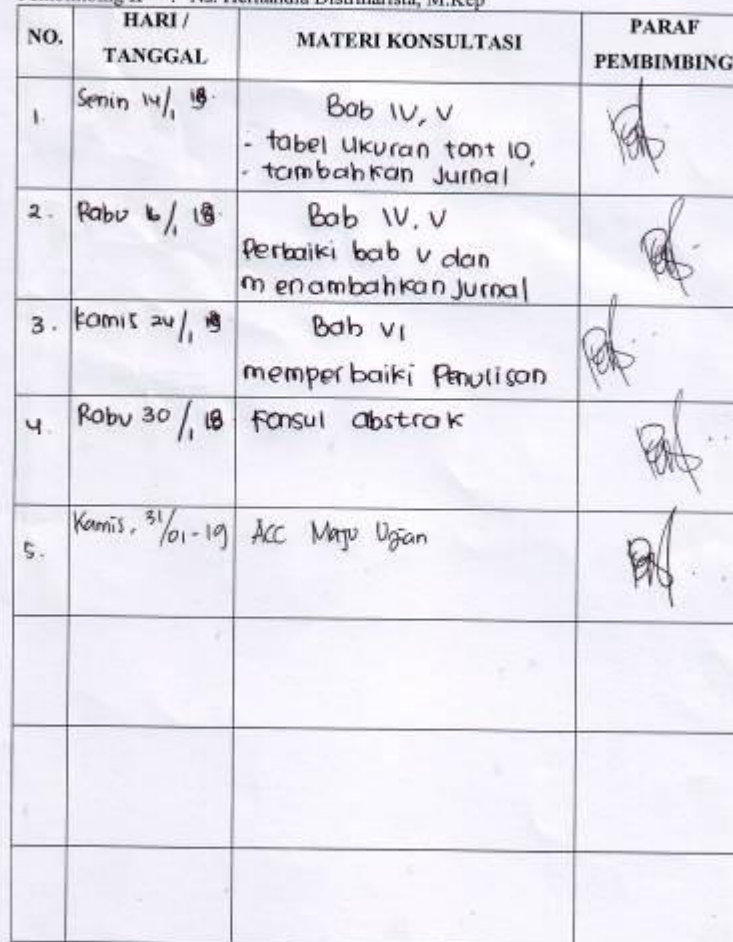 Pembimbing II : Ns. Hernandia Distinarista, M.Kep
NO. HARI / TANGGAL MATERI KONSULTASI PARAF PEMBIMBING
1. Senin 14/1 18. Bab IV, V
- tabel Ukuran font 10,
- tambahkan Jurnal
2. Rabu 16/1 18. Bab IV. V
Perbaiki bab V dan
menambahkan Jurnal
3. Kamis 24/1 Bab VI
memperbaiki Penulisan
4. Rabu 30/1 18 Konsul abstrak
5. Kamis, 31/01-19 Acc Maju Ujian